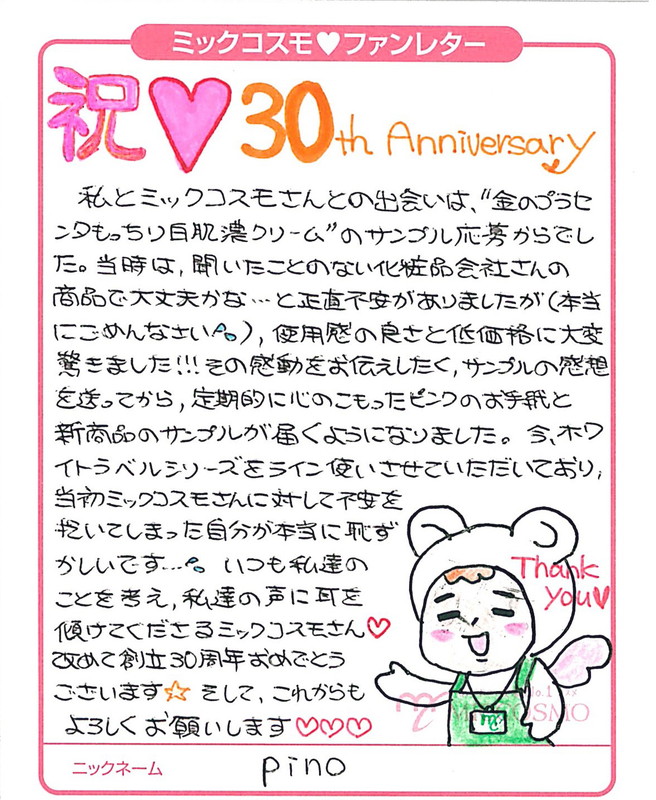 ミックコスモ♥ファンレター
祝♥30th Anniversary
私とミックコスモさんとの出会いは、“金のプラセ
ンタもっちり白肌濃クリーム”のサンプル応募からでし
た。当時は、聞いたことのない化粧品会社さんの
商品で大丈夫かな…と正直不安がありましたが(本当
にごめんなさい)、使用感の良さと低価格に大変
驚きました!!!その感動をお伝えしたく、サンプルの感想
を送ってから、定期的に心のこもったピンクのお手紙と
新商品のサンプルが届くようになりました。今、ホワ
イトラベルシリーズをライン使いさせていただいており、
当初ミックコスモさんに対して不安を
抱いてしまった自分が本当に恥ず
かしいです… いつも私達の
ことを考え、私達の声に耳を
傾けてくださるミックコスモさん♡
改めて創立30周年おめでとう
ございます☆ そして、これからも
よろしくお願いします♡♡♡
Thank
you♥
No.1
COSMO
mc
ニックネーム
pino